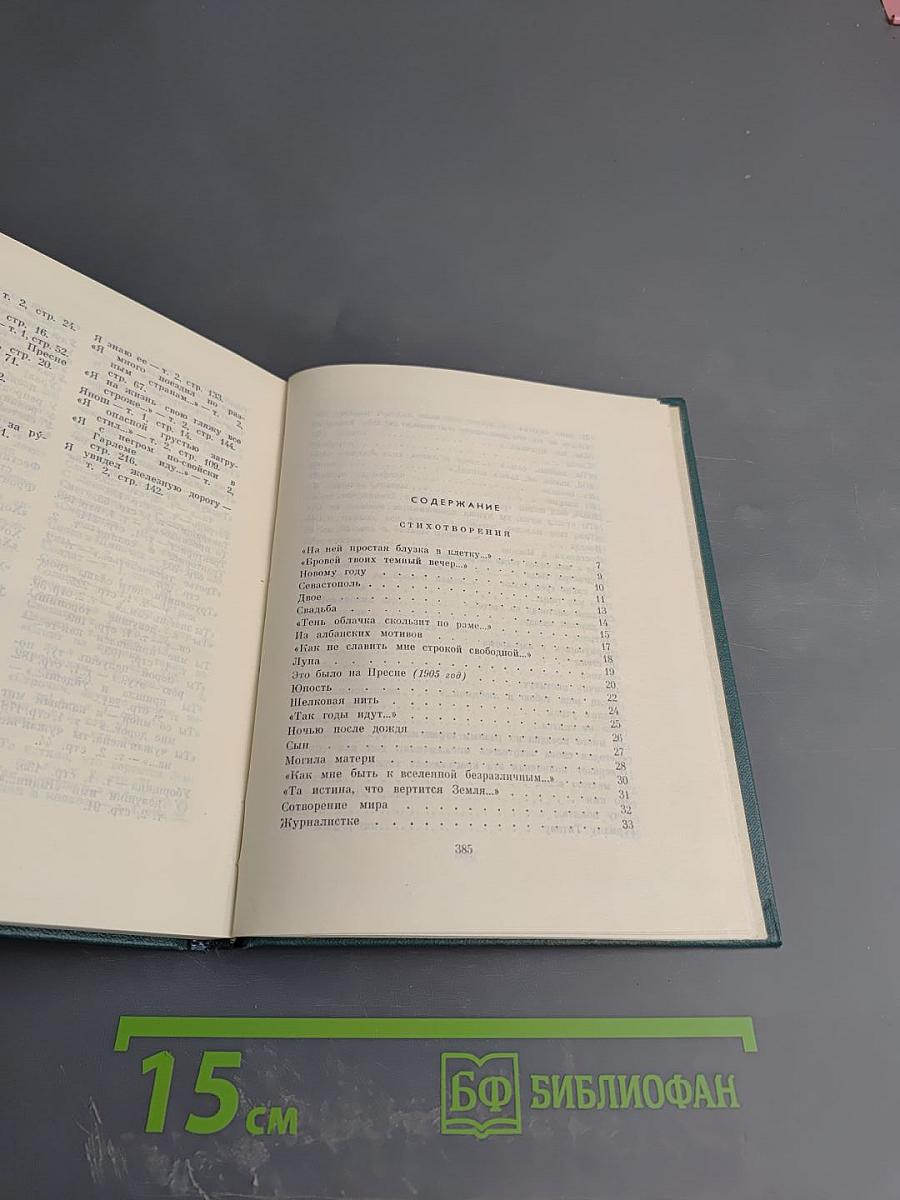 т. 2, стр. 24.
стр. 16.
— т. 1, стр. 52.
Пресне
стр. 20.
71.
2.
за ру-
1.
Я знаю ее — т. 2, стр. 133.
«Я много поездил по раз-
ным странам...» — т. 2,
стр. 67.
«Я на жизнь свою гляжу все
строже...» — т. 2, стр. 144.
Янош — т. 1, стр. 14.
«Я опасной грустью загру-
стил...» — т. 2, стр. 109.
«Я с негром по-свойски в
Гарлеме иду...» — т. 2,
стр. 216.
Я увидел железную дорогу —
т. 2, стр. 142.
СОДЕРЖАНИЕ
СТИХОТВОРЕНИЯ
«На ней простая блузка в клетку...» 7
«Бровей твоих темный вечер...» 9
Новому году 10
Севастополь 11
Двое 13
Свадьба 14
«Тень облачка скользит по раме...» 15
Из албанских мотивов 17
«Как не славить мне строкой свободной...» 18
Луна 19
Это было на Пресне (1905 год) 20
Юность 22
Шелковая нить 24
«Так годы идут...» 25
Ночью после дождя 26
Сын 27
Могила матери 28
«Как мне быть к вселенной безразличным...» 30
«Та истина, что вертится Земля...» 31
Сотворение мира 32
Журналистке 33
385
15 см
БФ БИБЛИОФАН